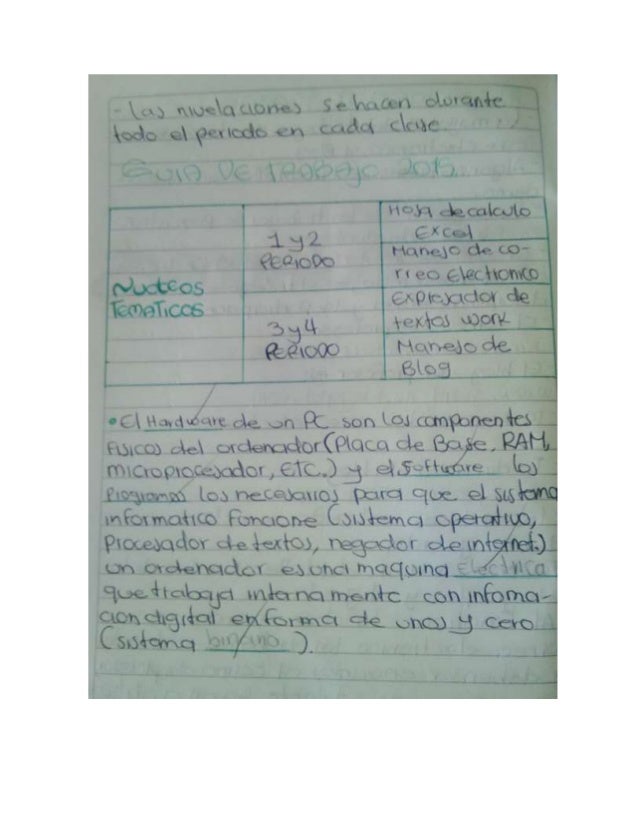 - Las nivelaciones se hacen durante
todo el periodo en cada clase.
GUIA DE TRABAJO 2015.
NUCLEOS
TEMATICOS
1 y 2
PERIODO
Hoja de calculo
Excel
Manejo de co-
rreo Electronico
3 y 4
PERIODO
Explejador de
textos work
Manejo de
Blog
• El Hardware de un PC son los componentes
Fisicos del ordenador (Placa de Base, RAM,
microprocesador, ETC.) y el Software los
Programas los necesarios para que el sistema
informatico funcione (sistema operativo,
Procesador de textos, negador de internet.)
un ordenador es una maquina electrica
que trabaja internamente con infoma-
cion digital en forma de unos y cero
(sistema binario ).